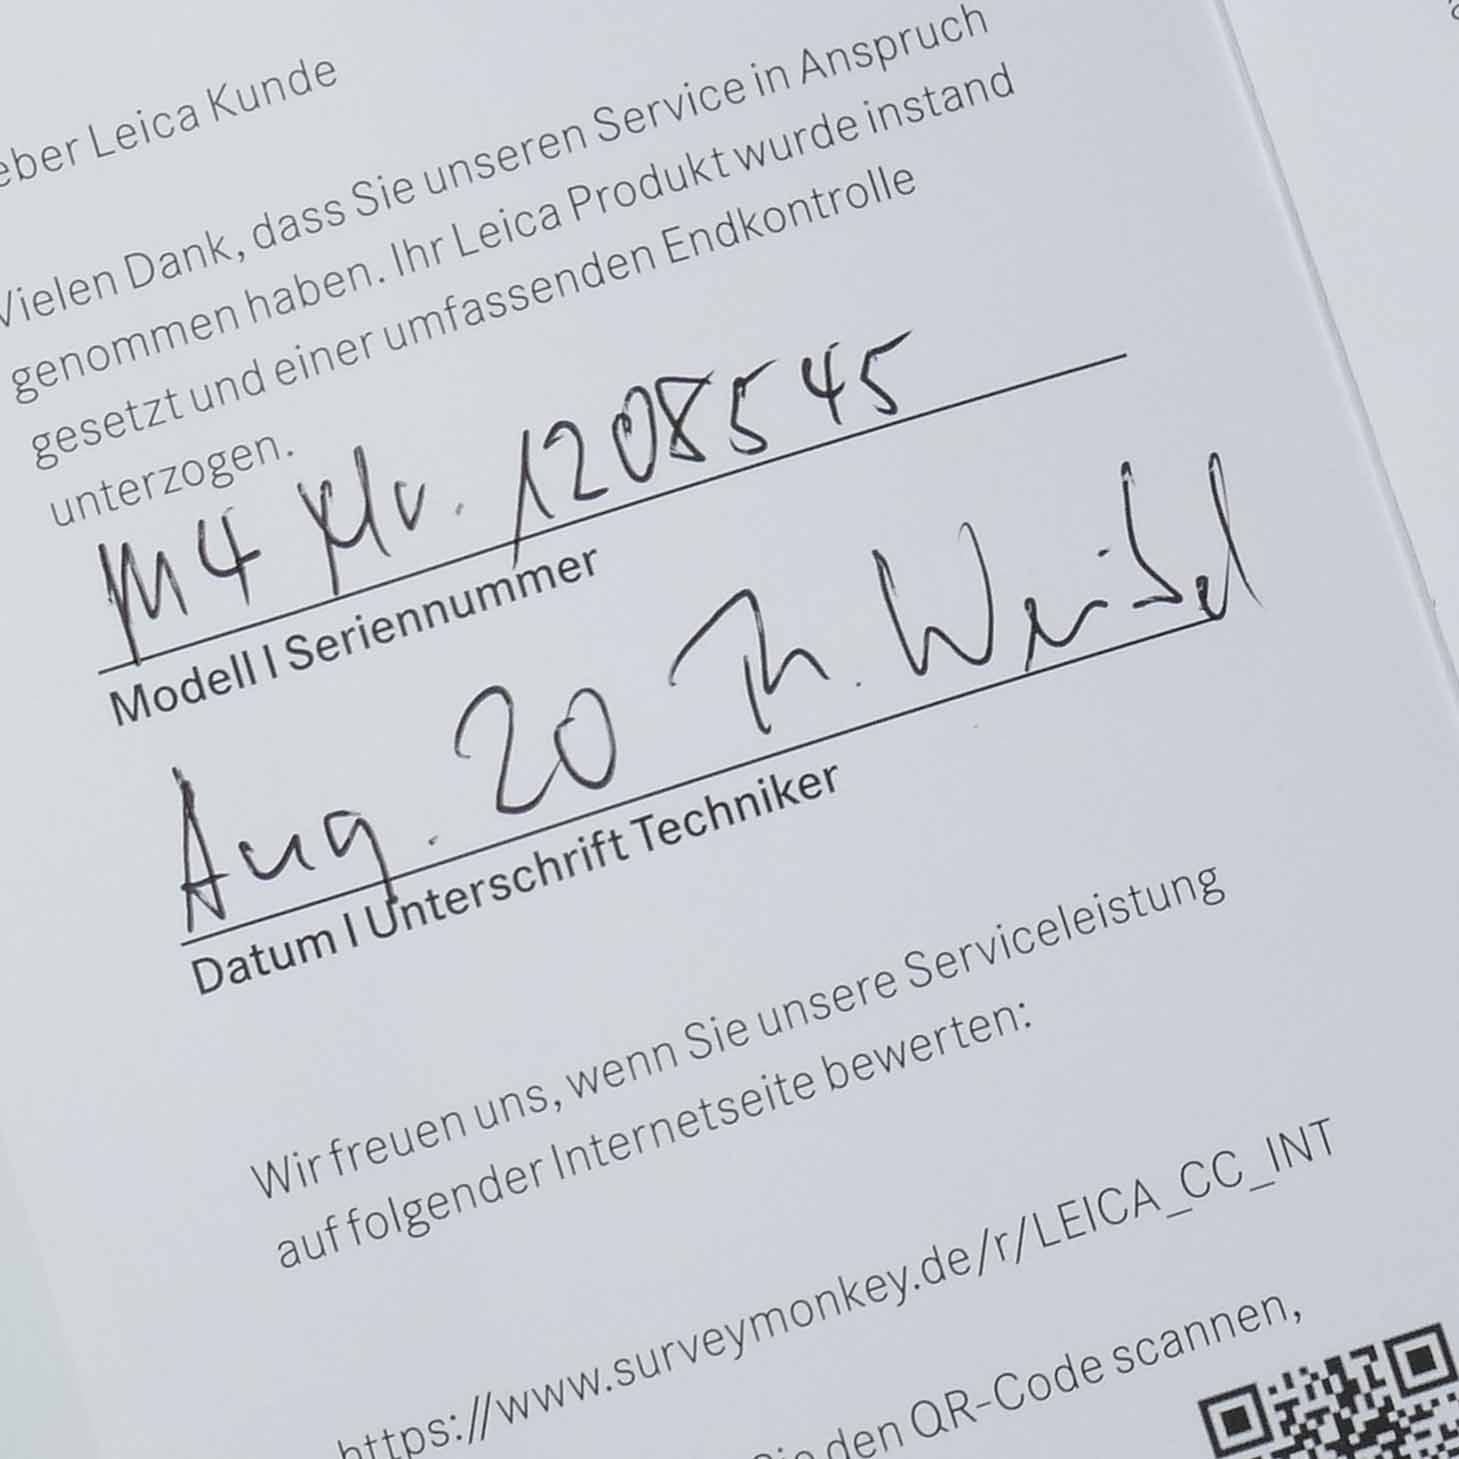 eber Leica Kunde
Vielen Dank, dass Sie unseren Service in Anspruch
genommen haben. Ihr Leica Produkt wurde instand
gesetzt und einer umfassenden Endkontrolle
unterzogen.
M4 Nr. 1208545
Modell I Seriennummer
Aug. 20 Th. Weisel
Datum I Unterschrift Techniker
Wir freuen uns, wenn Sie unsere Serviceleistung
auf folgender Internetseite bewerten:
https://www.surveymonkey.de/r/LEICA_CC_INT
den QR-Code scannen,